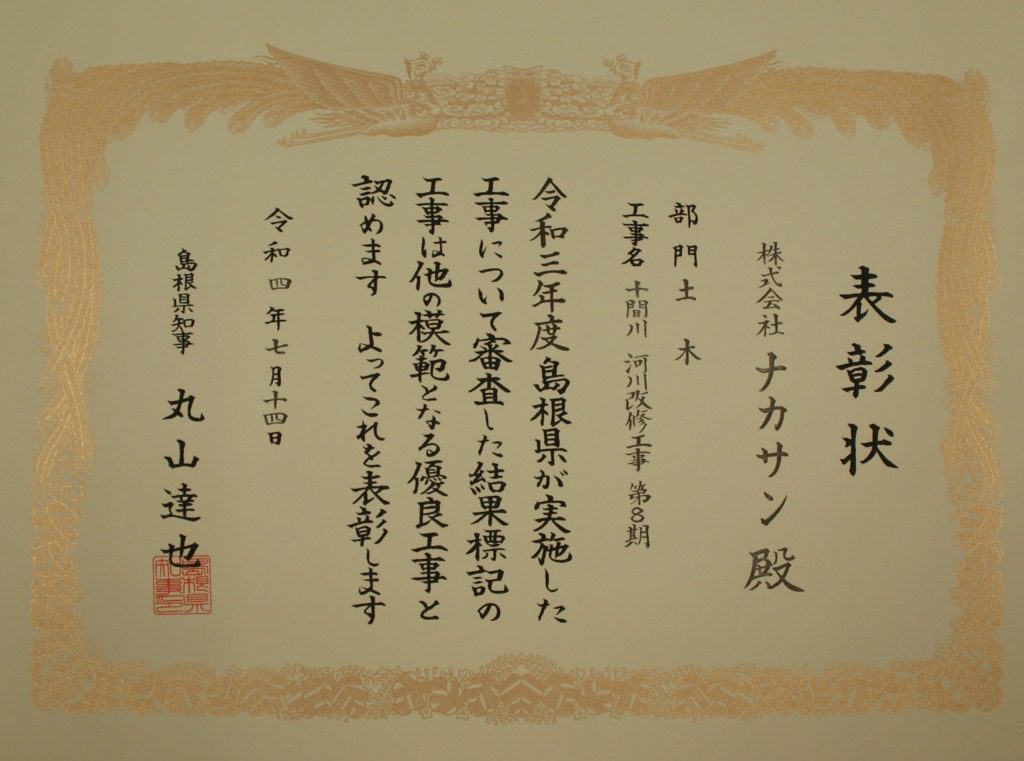 表彰状
株式会社 ナカサン 殿
部門 土木
工事名 十間川 河川改修工事 第8期
令和三年度島根県が実施した
工事について審査した結果標記の
工事は他の模範となる優良工事と
認めます よってこれを表彰します
令和四年七月十四日
島根県知事 丸山達也
島根県
知事印